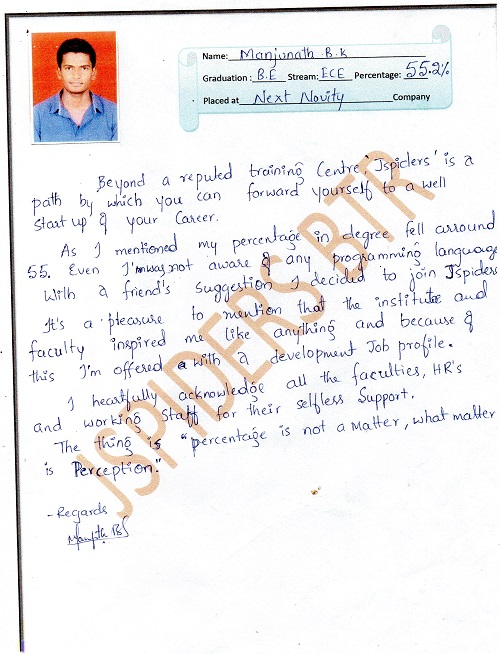 Name: Manjunath B.K
Graduation : B.E Stream: ECE Percentage: 55.2%
Placed at Next Novity Company
Beyond a reputed training Centre 'Jspiders' is a
path by which you can forward yourself to a well
start up of your Career.
As I mentioned my percentage in degree fell arround
55. Even I'm was not aware of any programming language
With a friend's suggestion I decided to join Jspiders
It's a pleasure to mention that the institute and
faculty inspired me like anything and because of
this I'm offered a with a development Job profile.
I heartfully acknowledge all the faculties, HR's
and working Staff for their selfless Support.
The thing is "percentage is not a Matter, what matter
is Perception."
- Regards
JSPIDERS BTR